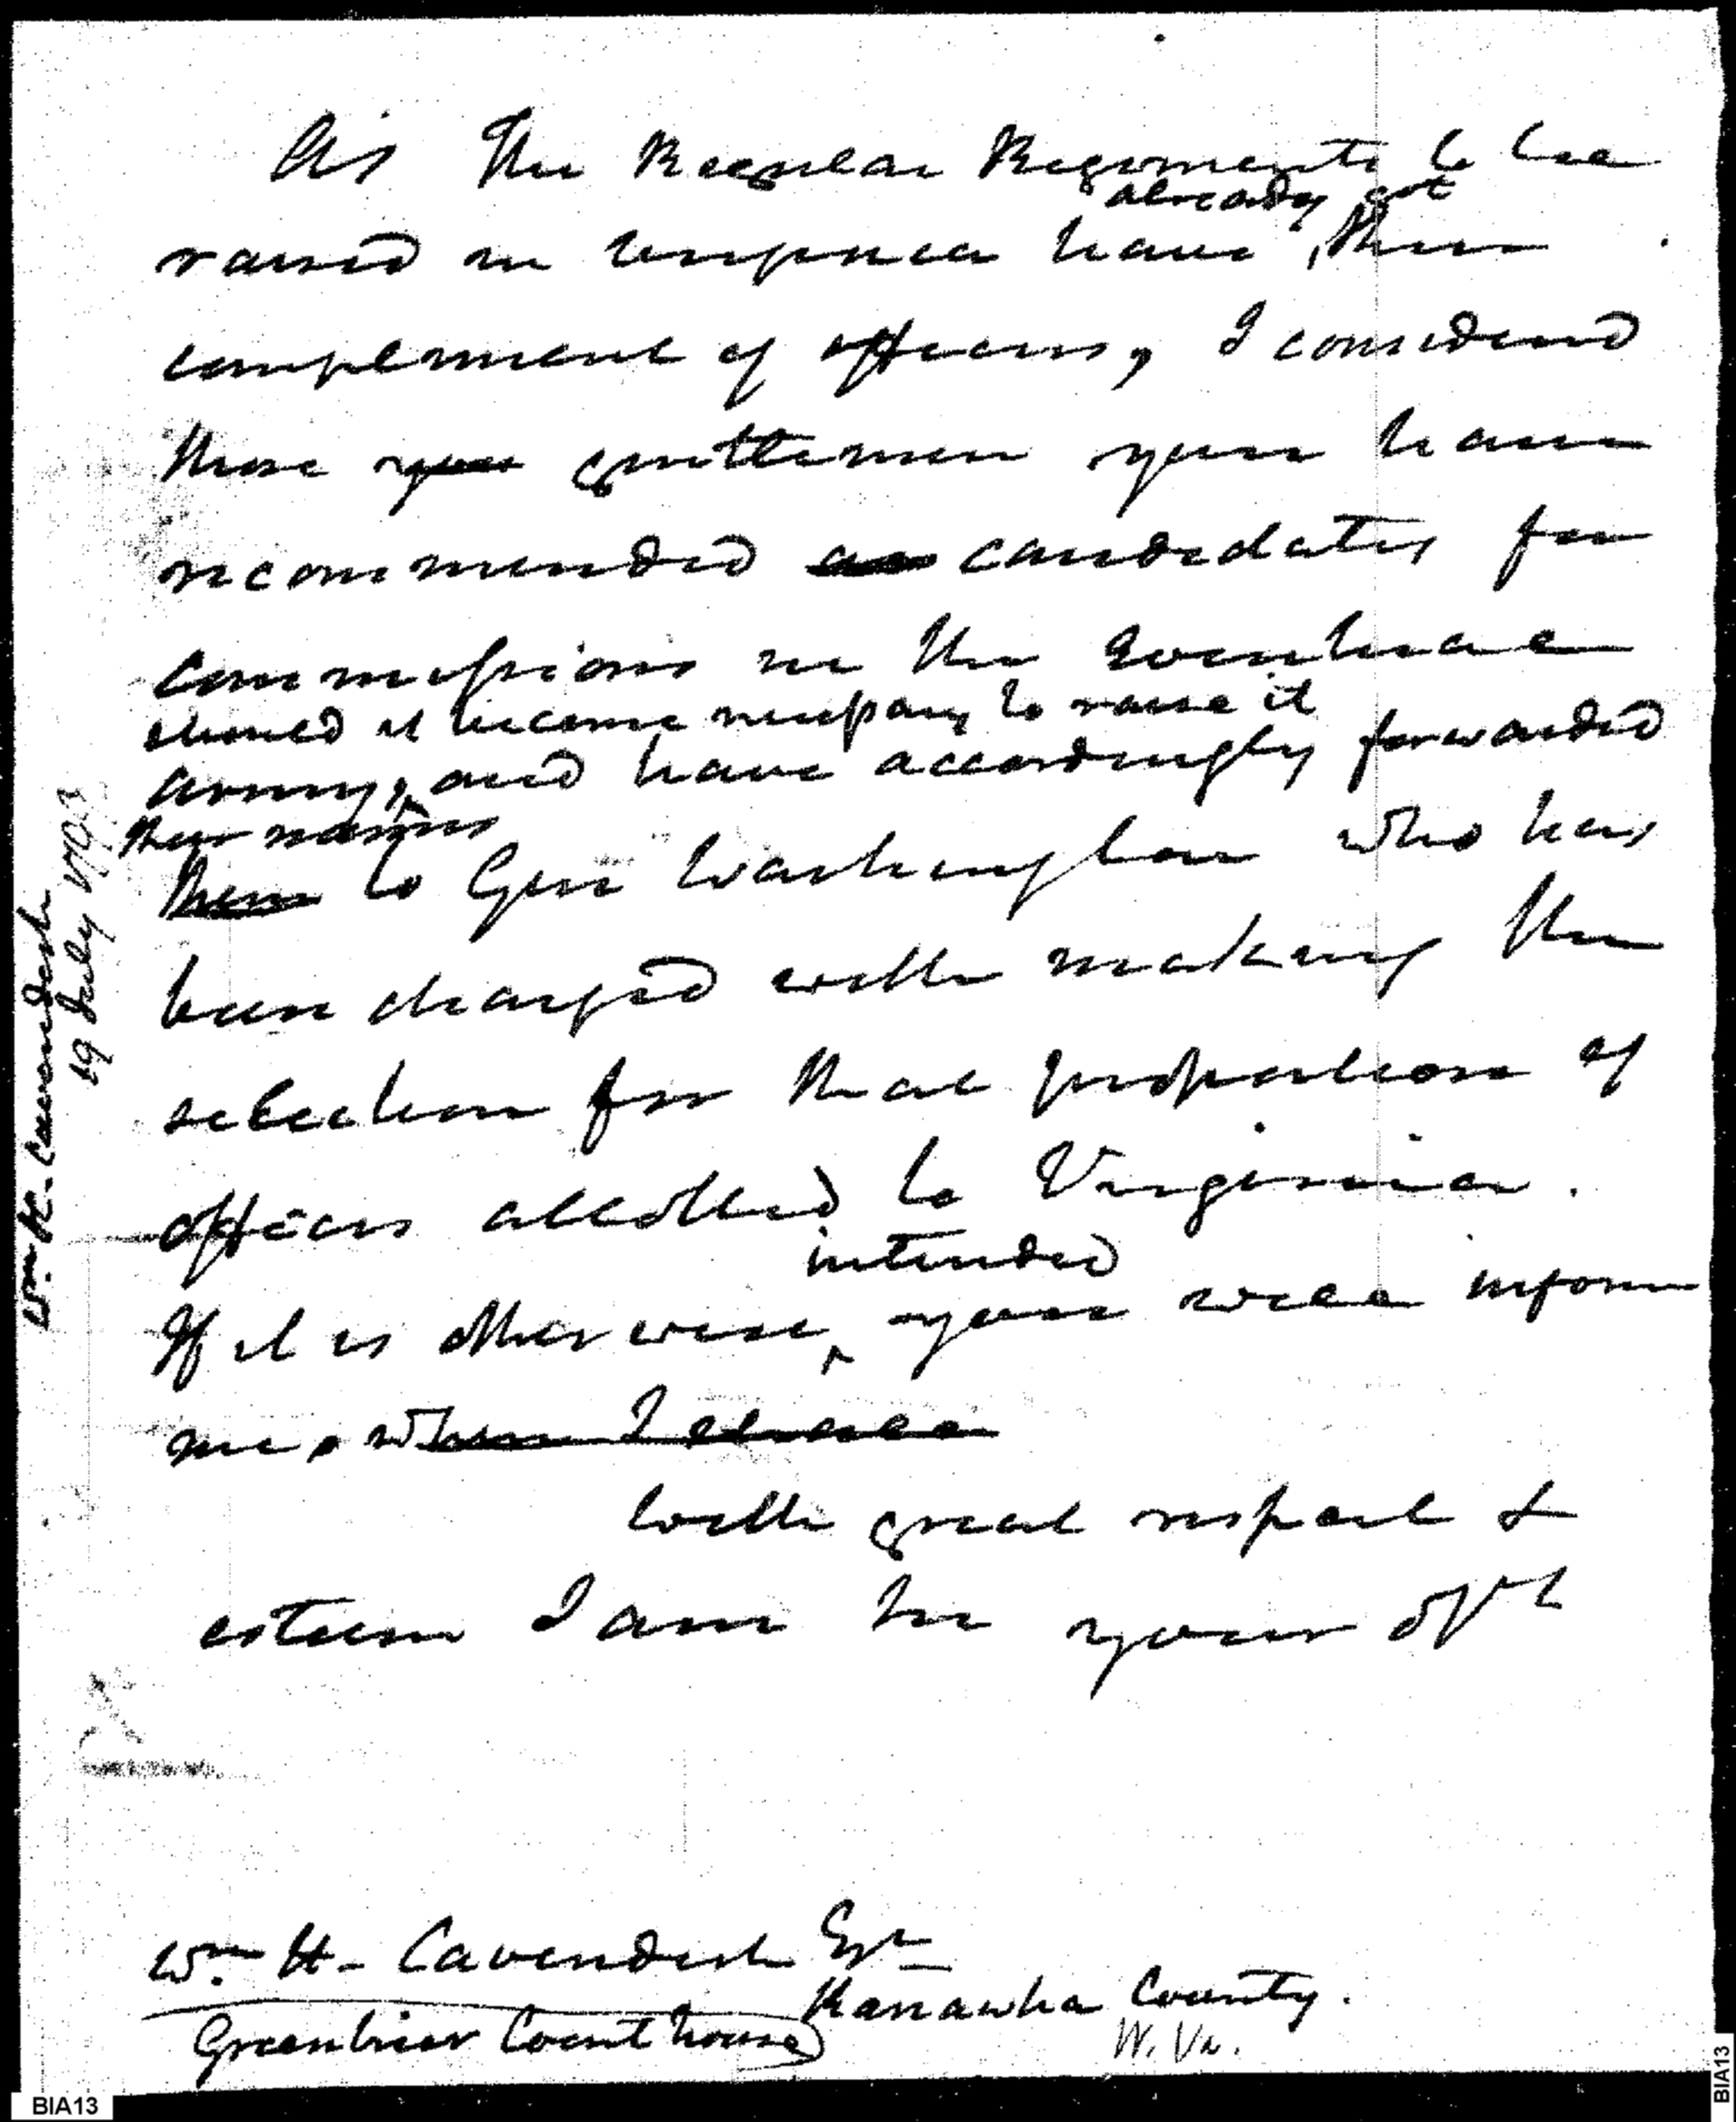 As the Regular Regiments to be
already got
raised in Virginia have, their
complement of officers, I considered
those you gentlemen you have
recommended as candidates for
commissions in the Eventual
should it become necessary to raise it
army, and have accordingly forwarded
their names
them to Gen Washington who has
been charged with making the
selection for that proportion of
officers allotted to Virginia.
intended
If it is otherwise, you will inform
me, when I shall
With great respect &
esteem I am Sir your obt
Wm. H. Cavendish Esqr
Kanawha County.
Greenbrier Court house
W. Va.
Wm. H. Cavendish
19 July
BIA13
BIA13